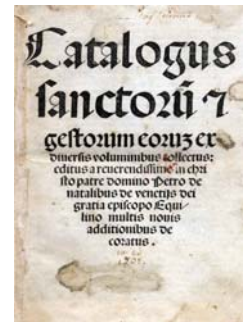 Catalogus
sanctorū ⁊
gestorum eoruʒ ex
diuersis voluminibus collectus:
editus a reuerendissimo in chri
sto patre domino Petro de
natalibus de venetijs dei
gratia episcopo Equi
lino multis nouis
additionibus de
coratus.